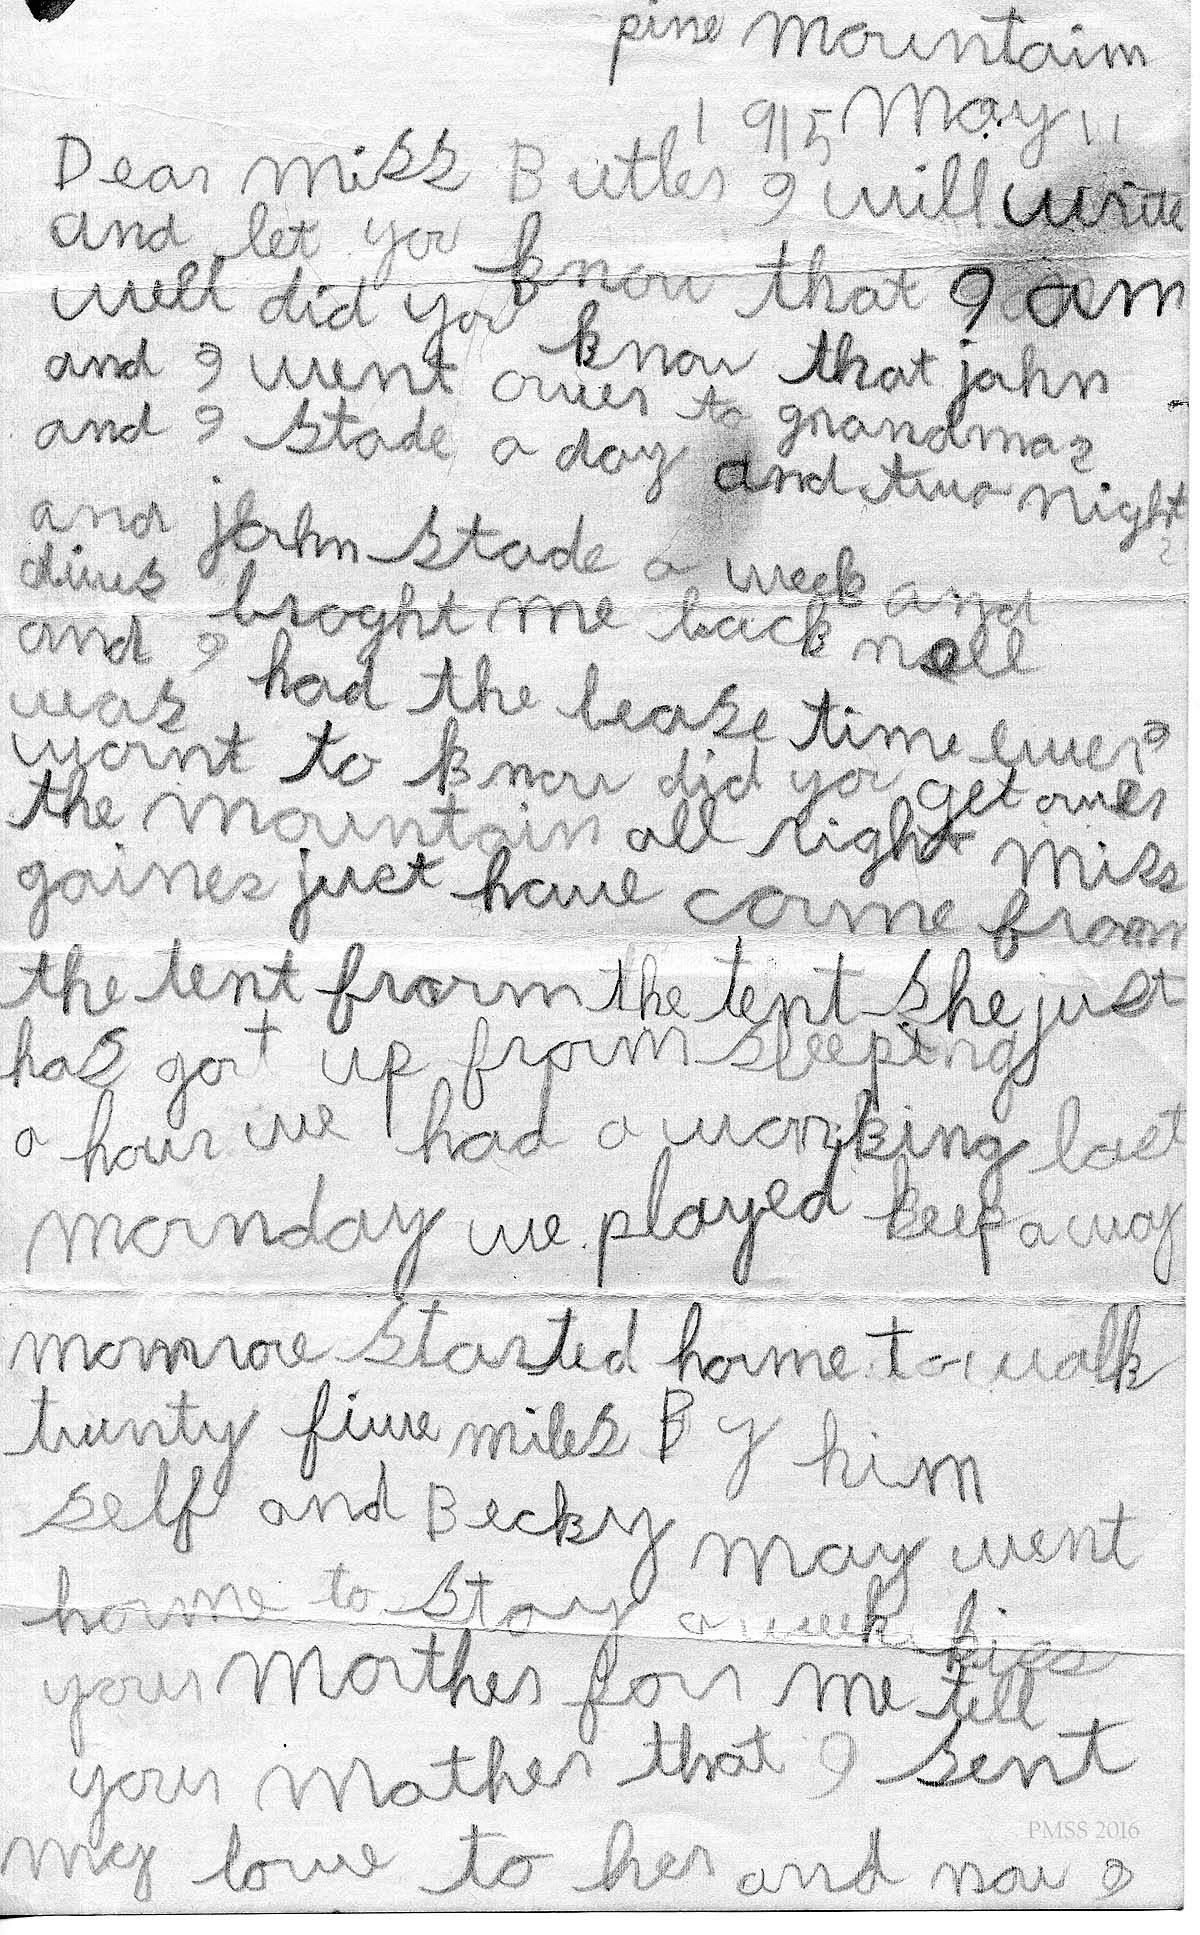 pine mountain
1915 May 11
Dear Miss Butler I will write
and let you know that I am
well did you know that john
and I went over to grandmas
and I stade a day and two night
s
and john stade a week and
broght me back
and I had the bease time ever I
want to know did you get over
the mountain all right Miss
gaines just have come from
the tent from the tent she just
has got up from sleeping
a hour we had a working last
monday we played keep away
monroe started home to walk
twnty five miles By him
self and Becky may went
home to stay a week kiss
your Mother for me tell
your Mother that I sent
my love to her and now I
PMSS 2016